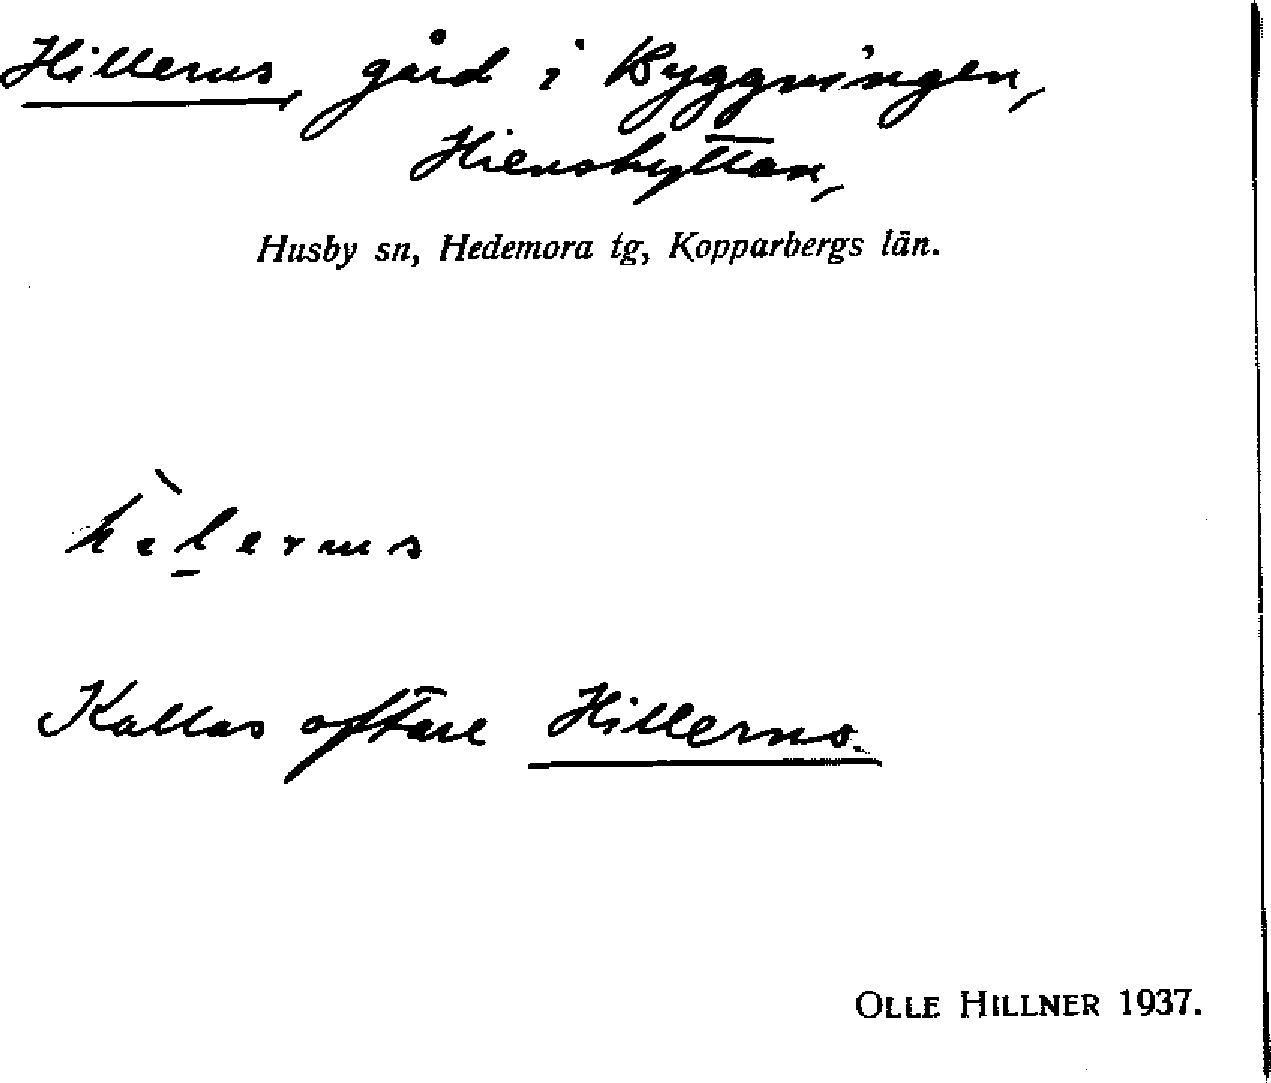 Hillerns, gård i Byggningen,
Hienshyttan,
Husby sn, Hedemora tg, Kopparbergs län.
Kallas oftare Hillerns.
OLLE HILLNER 1937.